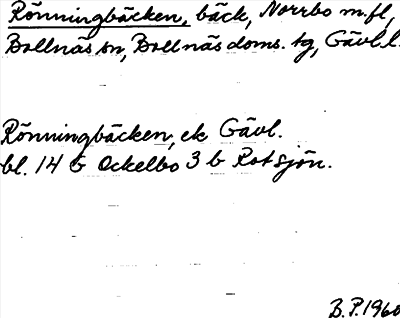 Rönningbäcken, bäck, Norrbo m.fl,
Bollnäs sn, Bollnäs doms. tg, Gävl.l.
Rönningbäcken, ek Gävl.
bl. 14 G Ockelbo 3 b Rotsjön.
B.P. 1960